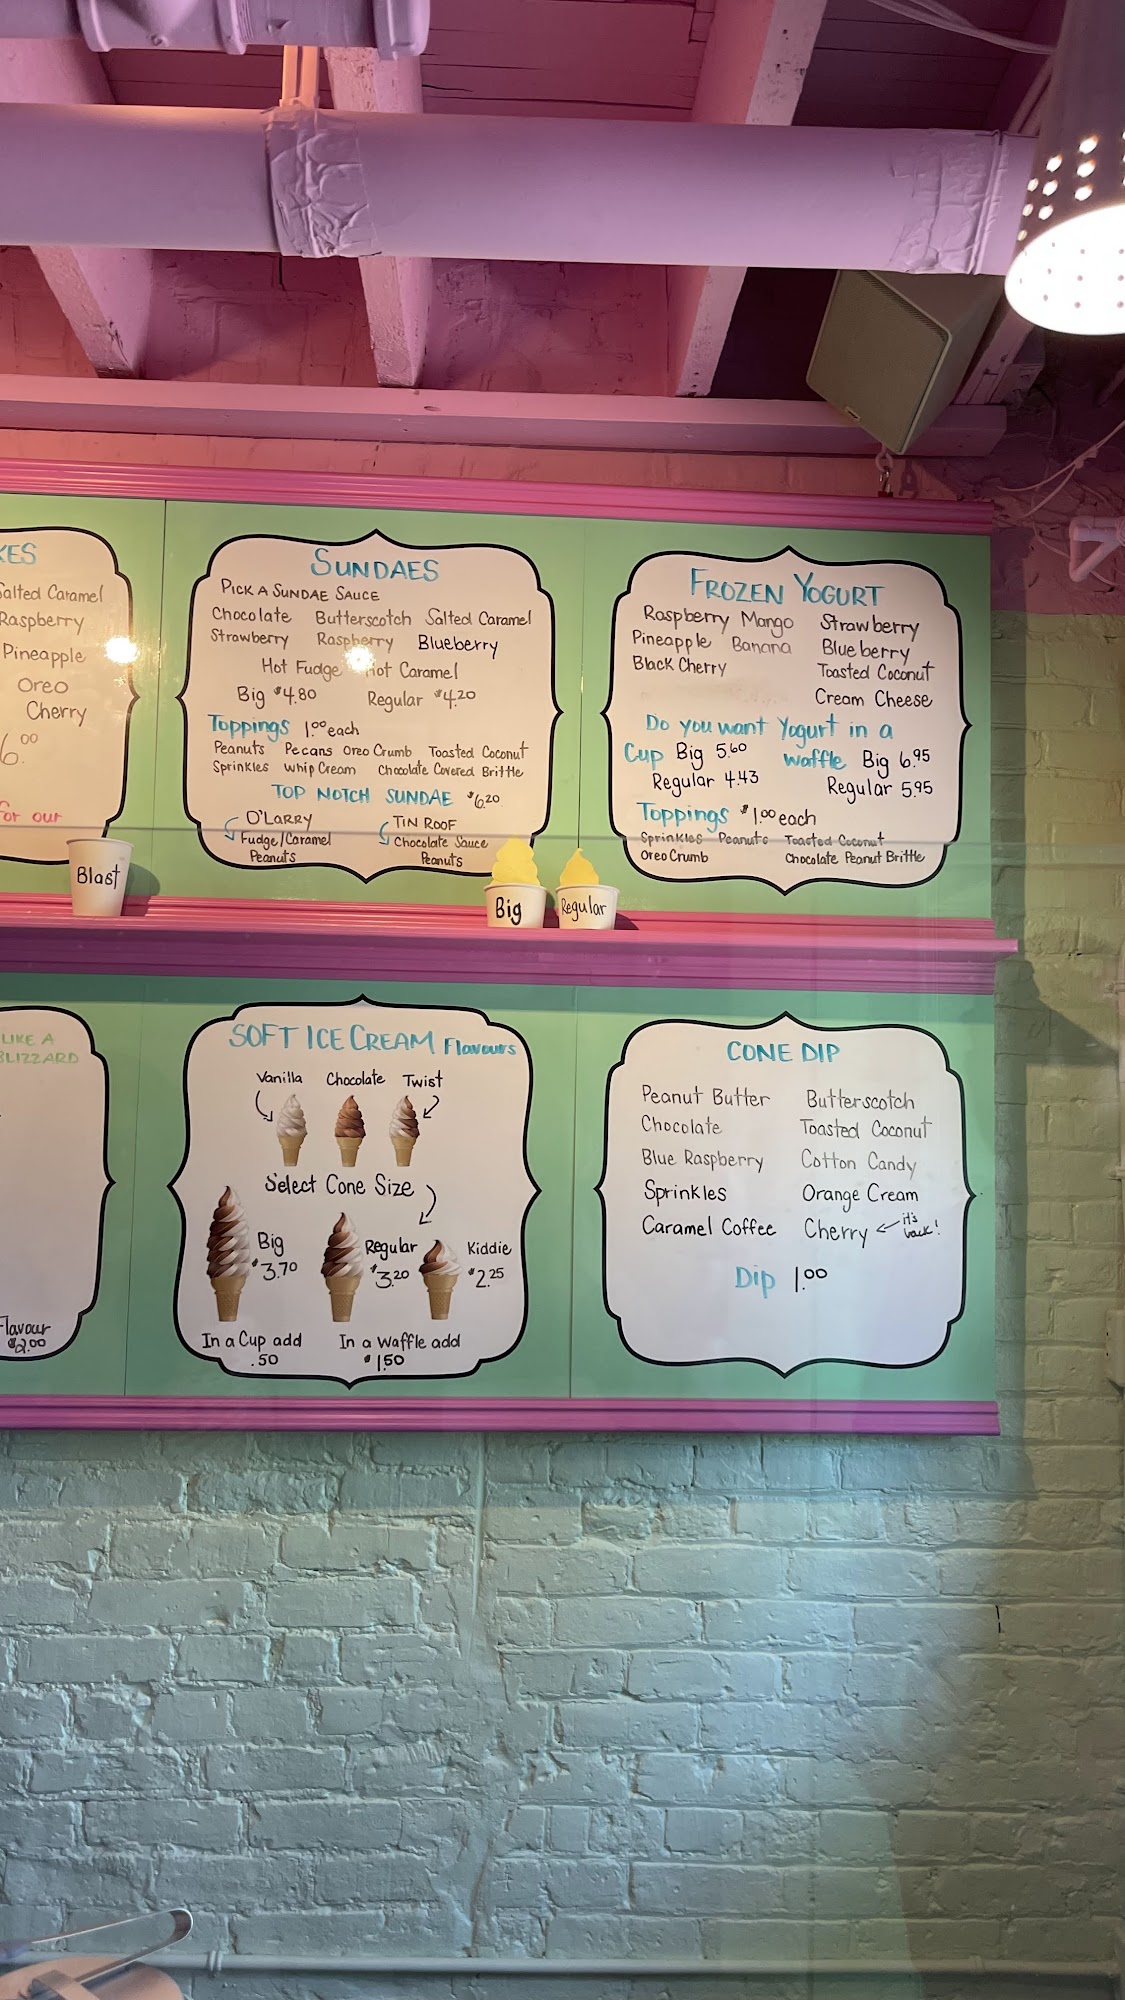 KES
Salted Caramel
Raspberry
Pineapple
Oreo
Cherry
6.00
for our
Blast
SUNDAES
PICK A SUNDAE SAUCE
Chocolate Butterscotch Salted Caramel
Strawberry Raspberry Blueberry
Hot Fudge Hot Caramel
Big $4.80 Regular $4.20
Toppings 1.00 each
Peanuts Pecans Oreo Crumb Toasted Coconut
Sprinkles Whip Cream Chocolate Covered Brittle
TOP NOTCH SUNDAE $6.20
O'LARRY TIN ROOF
Fudge/Caramel Chocolate Sauce
Peanuts Peanuts
Big
Regular
FROZEN YOGURT
Raspberry Mango Strawberry
Pineapple Banana Blueberry
Black Cherry Toasted Coconut
Cream Cheese
Do you want Yogurt in a
Cup Big 5.60 Waffle Big 6.95
Regular 4.43 Regular 5.95
Toppings $1.00 each
Sprinkles Peanuts Toasted Coconut
Oreo Crumb Chocolate Peanut Brittle
LIKE A
BLIZZARD
Flavour
$2.00
SOFT ICE CREAM Flavours
Vanilla Chocolate Twist
Select Cone Size
Big Regular Kiddie
$3.70 $3.20 $2.25
In a Cup add In a Waffle add
.50 $1.50
CONE DIP
Peanut Butter Butterscotch
Chocolate Toasted Coconut
Blue Raspberry Cotton Candy
Sprinkles Orange Cream
Caramel Coffee Cherry it's back!
Dip 1.00